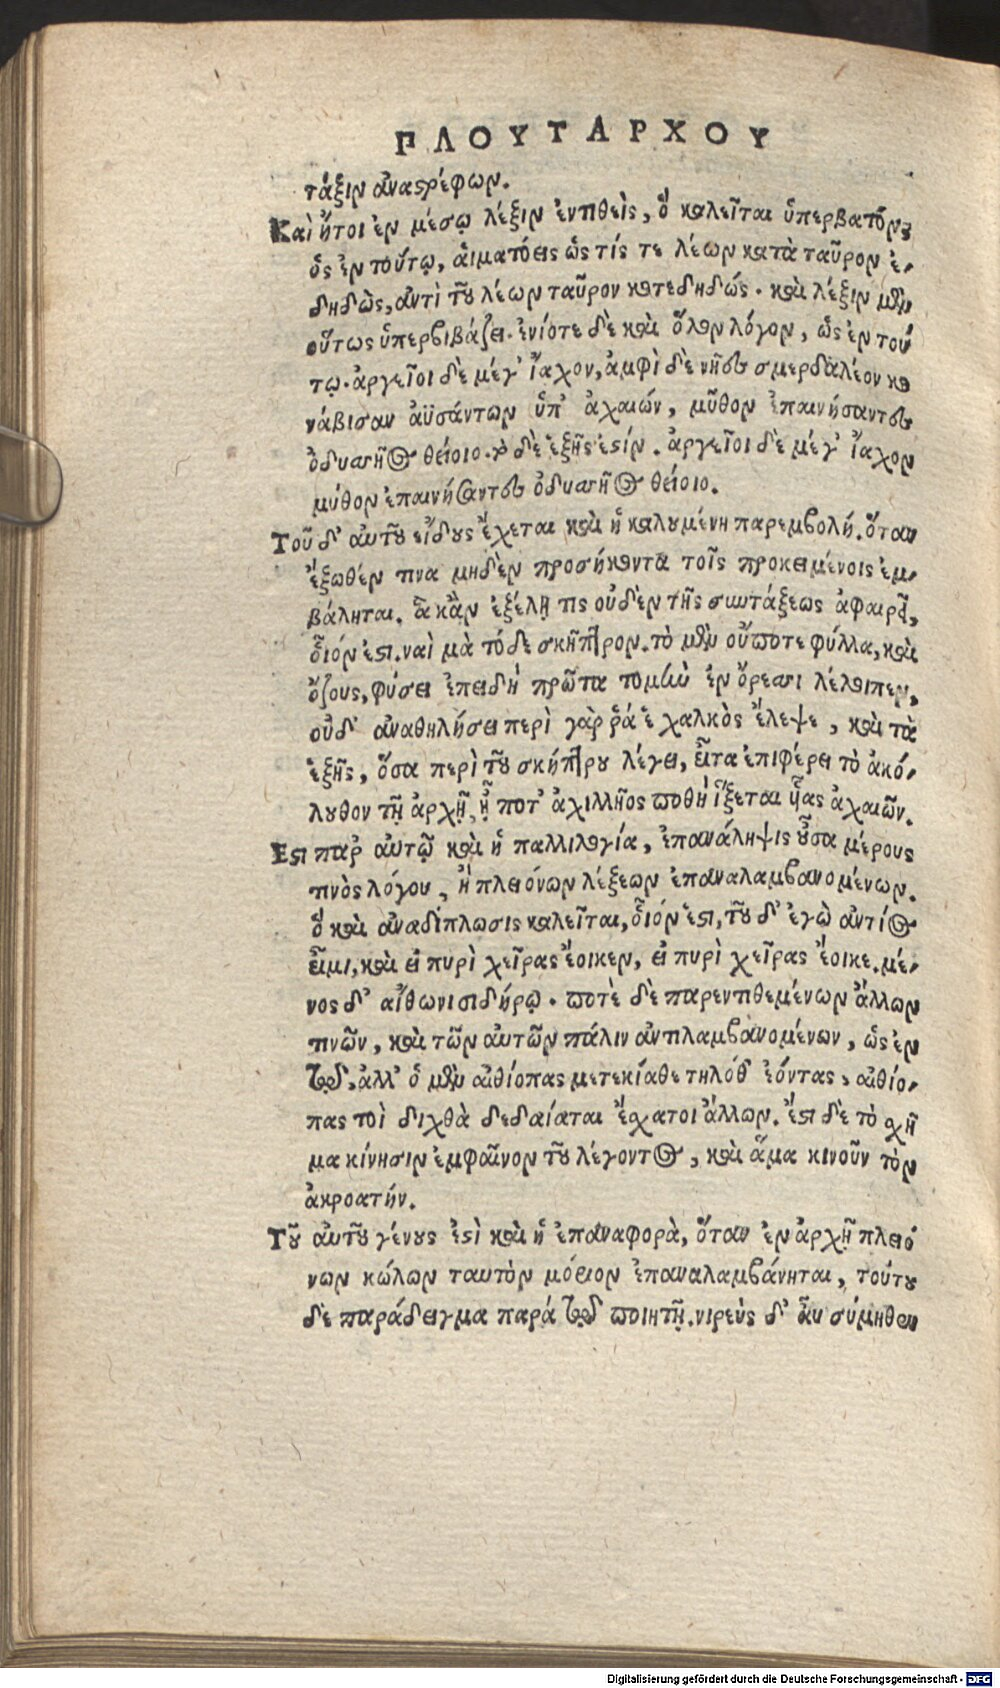 ΠΛΟΥΤΑΡΧΟΥ
τάξιν ἀναστρέφων.
Καὶ ἤτοι ἐν μέσῳ λέξιν ἐντιθεὶς, ὃ καλεῖται ὑπερβατόν,
ὡς ἐν τούτῳ, αἱματόεις ὥς τίς τε λέων κατὰ ταῦρον ἐ-
δηδὼς, ἀντὶ τοῦ λέων ταῦρον κατεδηδώς. καὶ λέξιν μὲν
οὕτως ὑπερβιβάζει. ἐνίοτε δὲ καὶ ὅλον λόγον, ὡς ἐν τού
τῳ. ἀργεῖοι δὲ μέγ' ἴαχον, ἀμφὶ δὲ νῆες σμερδαλέον κο
νάβισαν ἀϋσάντων ὑπ' ἀχαιών, μῦθον ἐπαινήσαντες
ὀδυσσῆος θείοιο. τὸ δὲ ἑξῆς ἐστίν. ἀργεῖοι δὲ μέγ' ἴαχον
μύθον ἐπαινήσαντες ὀδυσσῆος θείοιο.
Τοῦ δ' αὐτοῦ εἴδους ἔχεται καὶ ἡ καλουμένη παρεμβολή. ὅταν
ἔξωθέν τινα μηδὲν προσήκοντα τοῖς προκειμένοις ἐμ-
βάληται. ἃ κἂν ἐξέλῃ τις οὐδὲν τῆς συντάξεως ἀφαιρεῖ,
οἷόν ἐστι. ναὶ μὰ τόδε σκῆπτρον. τὸ μὲν οὔποτε φύλλα, καὶ
ὄζους, φύσει ἐπειδὴ πρῶτα τομὴν ἐν ὄρεσσι λέλοιπεν,
οὐδ' ἀναθηλήσει περὶ γάρ ῥά ἑ χαλκὸς ἔλεψε, καὶ τὰ
ἑξῆς, ὅσα περὶ τοῦ σκήπτρου λέγει, εἶτα ἐπιφέρει τὸ ἀκό-
λουθον τῇ ἀρχῇ, ἦ ποτ' ἀχιλλῆος ποθὴ ἵξεται υἷας ἀχαιῶν.
Εστι παρ' αὐτῷ καὶ ἡ παλλιλογία, ἐπανάληψις οὖσα μέρους
τινὸς λόγου, ἢ πλειόνων λέξεων ἐπαναλαμβανομένων.
ὃ καὶ ἀναδίπλωσις καλεῖται, οἷόν ἐστι, τοῦ δ' ἐγὼ ἀντίος
εἶμι, καὶ εἰ πυρὶ χεῖρας ἔοικεν, εἰ πυρὶ χεῖρας ἔοικε. μέ-
νος δ' αἴθωνι σιδήρῳ. ποτὲ δὲ παρεντιθεμένων ἄλλων
τινῶν, καὶ τῶν αὐτῶν πάλιν ἀντιλαμβανομένων, ὡς ἐν
τῷδ', ἀλλ' ὁ μὲν αἰθίοπας μετεκίαθε τηλόθ' ἐόντας, αἰθίο-
πας τοὶ διχθὰ δεδαίαται ἔσχατοι ἄλλων. ἔστι δὲ τὸ σχῆ
μα κίνησιν ἐμφαῖνον τοῦ λέγοντος, καὶ ἅμα κινοῦν τὸν
ἀκροατήν.
Τοῦ αὐτοῦ γένους ἐστὶ καὶ ἡ ἐπαναφορὰ, ὅταν ἐν ἀρχῇ πλειό
νων κώλων ταυτὸν μόριον ἐπαναλαμβάνηται, τούτου
δὲ παράδειγμα παρά τῷδ ποιητῇ. νιρεὺς δ' ἂν σύμηθεν
Digitalisierung gefördert durch die Deutsche Forschungsgemeinschaft - DFG